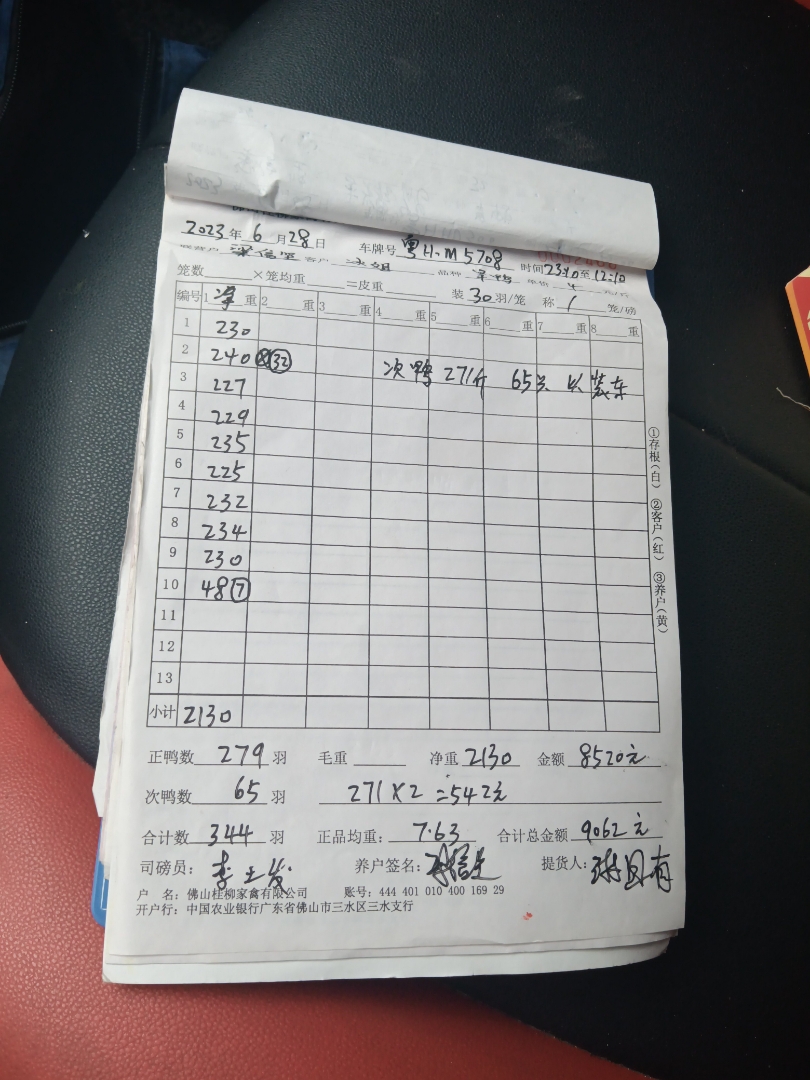 2023年 6 月 28 日 车牌号 粤H·M5708 时间23:10至12:10
笼数 ×笼均重 =皮重 装 30 羽/笼 称 1 笼/磅
编号 1 净 重 2 重 3 重 4 重 5 重 6 重 7 重 8 重
1 230
2 240 32
3 227 次鸭 271斤 65只 以装车
4 229
5 235
6 225
7 232
8 234
9 230
10 48 7
11
12
13
小计 2130
正鸭数 279 羽 毛重 净重 2130 金额 8520元
次鸭数 65 羽 271×2=542元
合计数 344 羽 正品均重: 7.63 合计总金额 9062元
司磅员: 养户签名: 提货人:
户 名: 佛山桂柳家禽有限公司 账号: 444 401 010 400 169 29
开户行: 中国农业银行广东省佛山市三水区三水支行
①存根(白) ②客户(红) ③养户(黄)